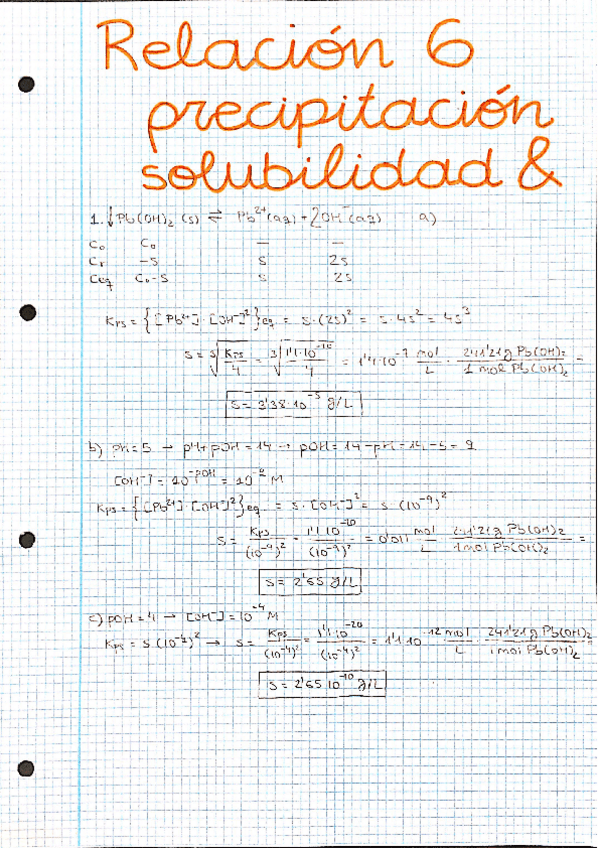 Relación 6
precipitación
solubilidad &
1. ↓Pb(OH)₂ (s) ⇌ Pb²⁺(aq) + 2OH⁻(aq) a)
C₀ C₀ — —
Cr -S S 2S
Ceq C₀-S S 2S
Kps = {[Pb²⁺]·[OH⁻]²}eq = s·(2s)² = s·4s² = 4s³
s = ³√(Kps/4) = ³√(1'1·10⁻²⁰/4) = 1'4·10⁻⁷ mol/L · 241'21g Pb(OH)₂/1 mol Pb(OH)₂ =
S = 3'38·10⁻⁵ g/L
b) pH = 5 → pH + pOH = 14 → pOH = 14 - pH = 14 - 5 = 9
[OH⁻] = 10^-pOH = 10⁻⁹ M
Kps = {[Pb²⁺]·[OH⁻]²}eq = s·[OH⁻]² = s·(10⁻⁹)²
S = Kps/(10⁻⁹)² = 1'1·10⁻²⁰/(10⁻⁹)² = 0'011 mol/L · 241'21g Pb(OH)₂/1 mol Pb(OH)₂ =
S = 2'65 g/L
c) pOH = 4 → [OH⁻] = 10⁻⁴ M
Kps = s·(10⁻⁴)² → S = Kps/(10⁻⁴)² = 1'1·10⁻²⁰/(10⁻⁴)² = 1'1·10⁻¹² mol/L · 241'21g Pb(OH)₂/1 mol Pb(OH)₂ =
S = 2'65·10⁻¹⁰ g/L